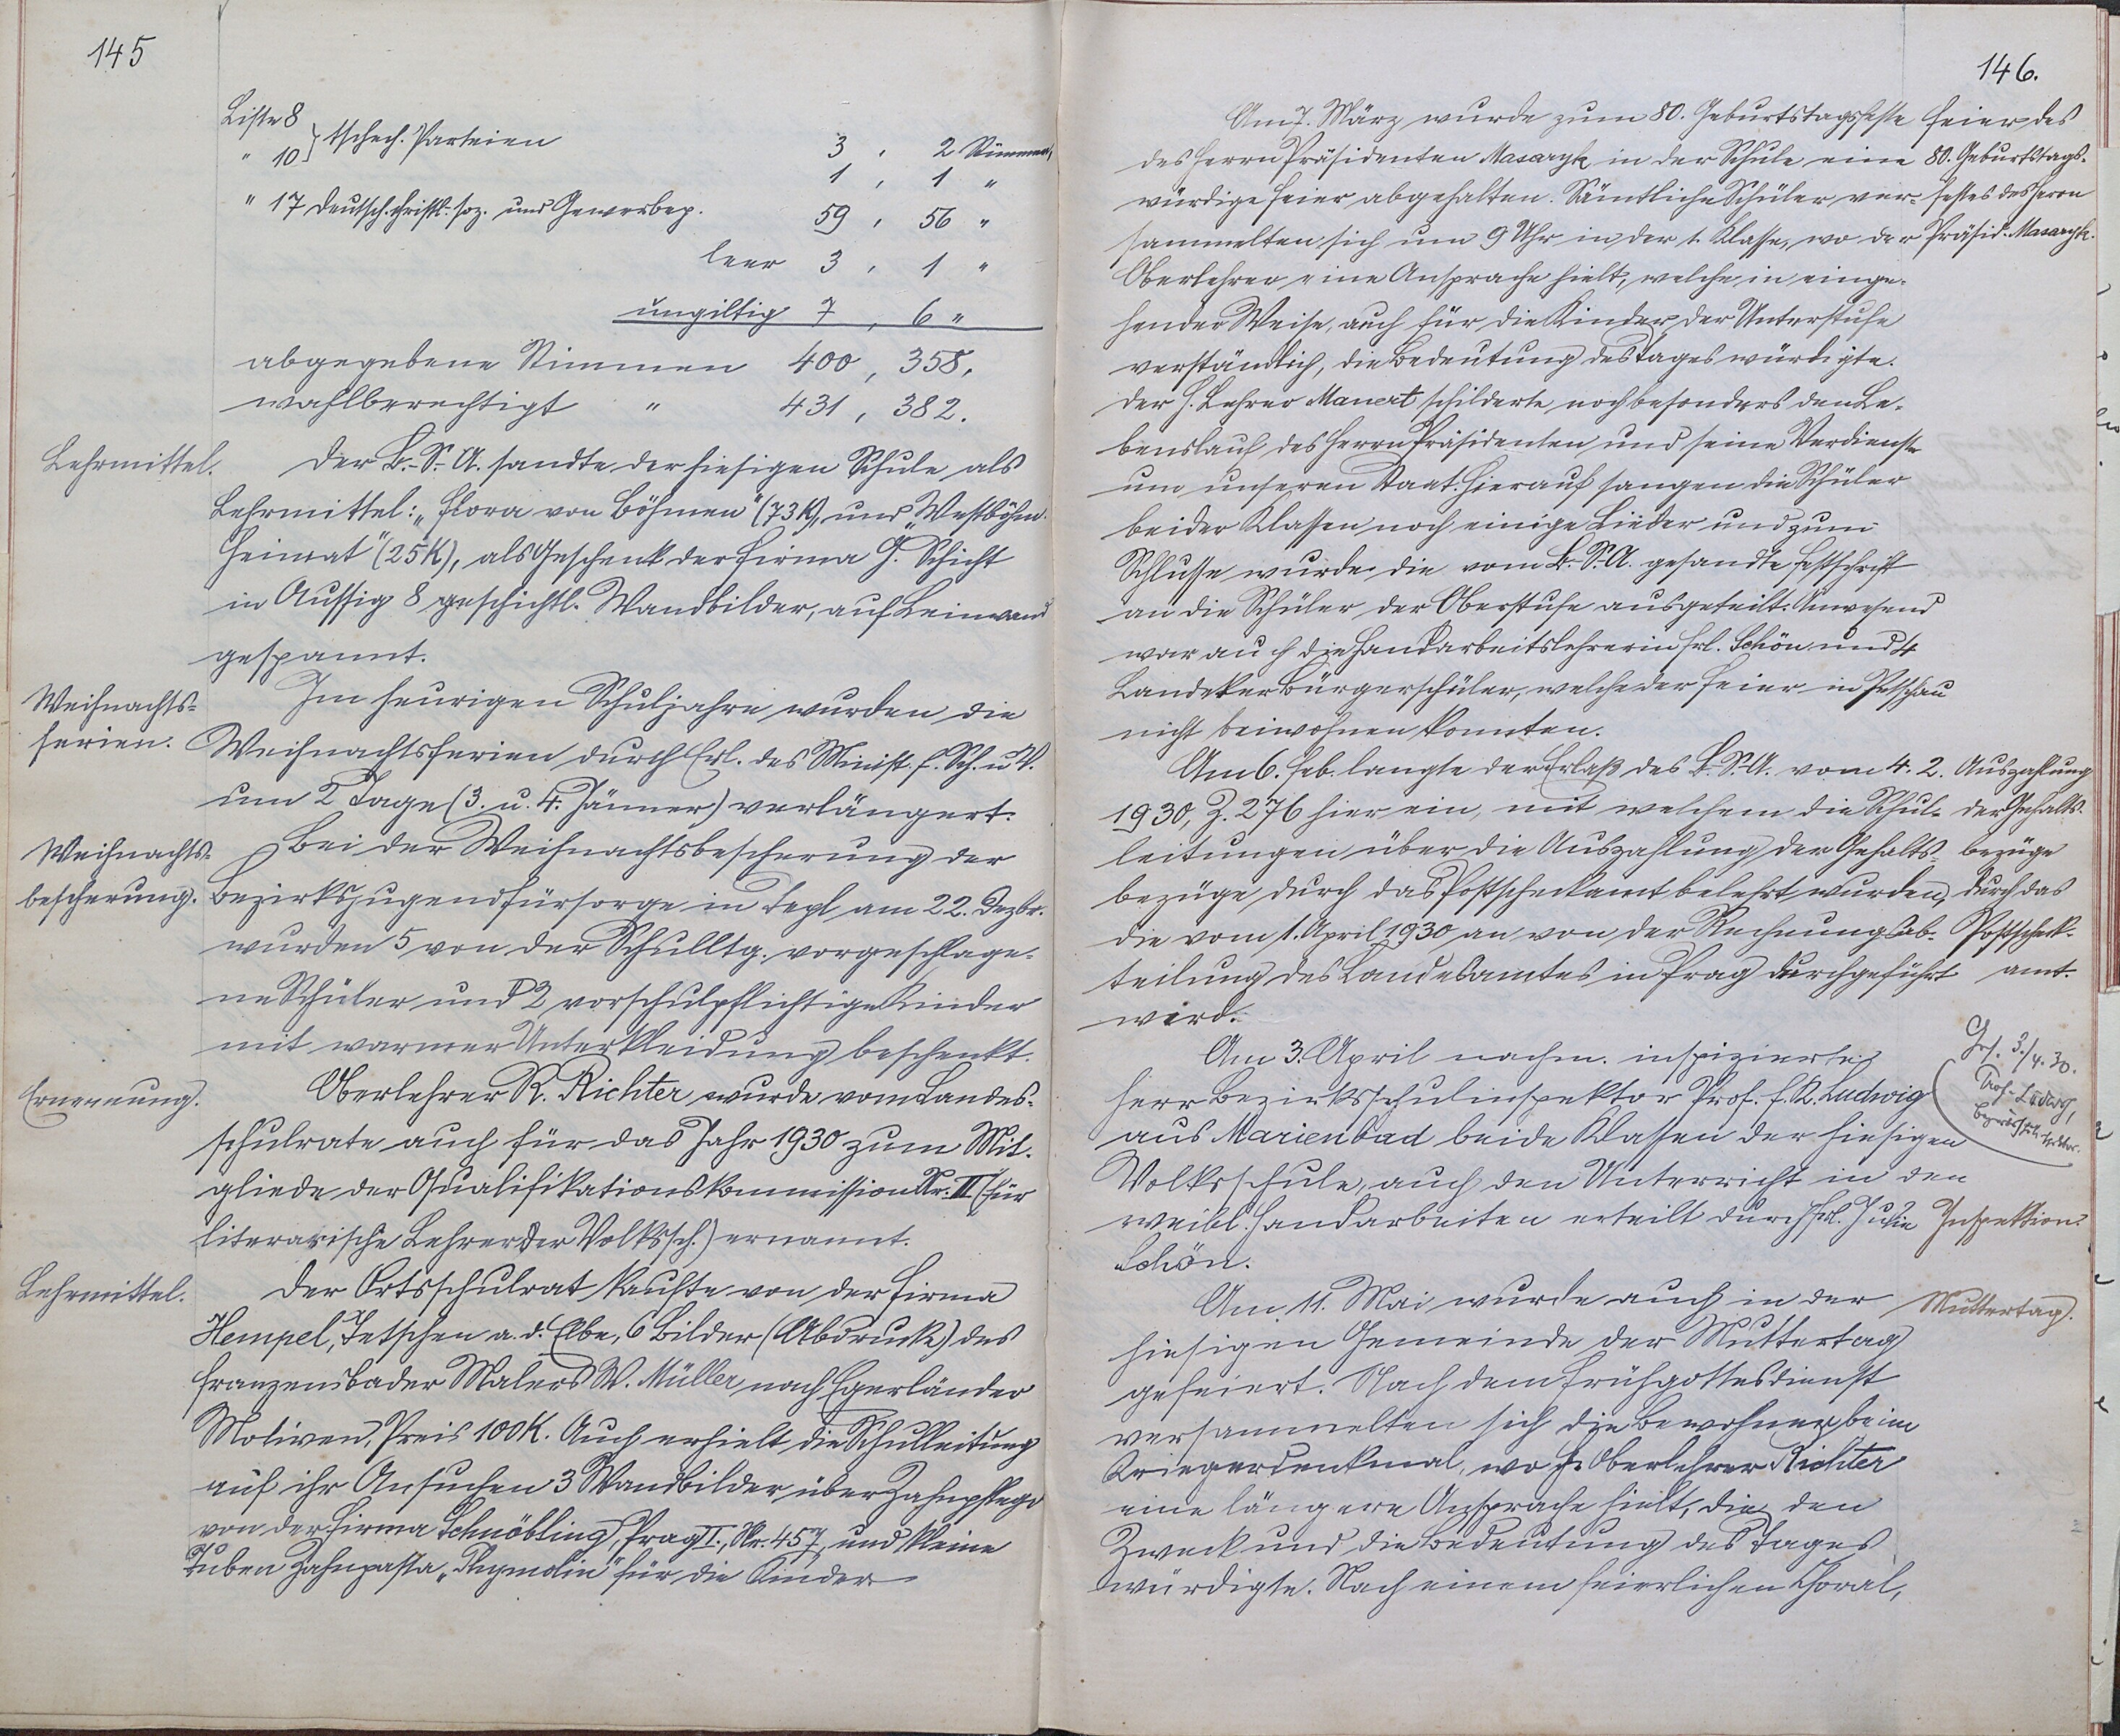 145
Liste 8 } tschech. Parteien 3 , 2 Stimmen,
" 10 } 1 , 1 "
" 17 Deutsch. christl. soz. und Gewerbep. 59 , 56 "
leer 3 , 1 "
ungiltig 7 , 6 "
abgegebene Stimmen 400 , 358,
wahlberechtigt " 431 , 382.
Lehrmittel. Der B.-S.-A. sandte der hiesigen Schule als
Lehrmittel: „Flora von Böhmen" (73 K), und „Westböhm.
Heimat" (25 K), als Geschenk der Firma G. Schicht
in Aussig 8 geschichtl. Wandbilder, auf Leinwand
gespannt.
Weihnachts- Im heurigen Schuljahre wurden die
ferien. Weihnachtsferien durch Erl. des Minist. f. Sch. u. V.
um 2 Tage (3. u. 4. Jänner) verlängert.
Weihnachts- Bei der Weihnachtsbescherung der
bescherung. Bezirksjugendfürsorge in Tepl am 22. Dezbr.
wurden 5 von der Schulltg. vorgeschlage-
ne Schüler und 2 vorschulpflichtige Kinder
mit warmer Unterkleidung beschenkt.
Ernennung. Oberlehrer R. Richter wurde vom Landes-
schulrate auch für das Jahr 1930 zum Mit-
gliede der Qualifikationskommission Nr. III (für
literarische Lehrer der Volkssch.) ernannt.
Lehrmittel. Der Ortsschulrat kaufte von der Firma
Hempel, Tetschen a. d. Elbe, 6 Bilder (Abdruck) des
Franzensbader Malers W. Müller nach Egerländer
Motiven, Preis 100 K. Auch erhielt die Schulleitung
auf ihr Ansuchen 3 Wandbilder über Zahnpflege
von der Firma Schnöbling, Prag II., Nr. 457, und kleine
Tuben Zahnpasta „Thymolin" für die Kinder
146.
Am 7. März wurde zum 80. Geburtstagsfeste Feier des
des Herrn Präsidenten Masaryk in der Schule eine 80. Geburtstags-
würdige Feier abgehalten. Sämtliche Schüler ver- festes des Herrn
sammelten sich um 9 Uhr in der 1. Klasse, wo der Präsid. Masaryk.
Oberlehrer eine Ansprache hielt, welche in einge-
hender Weise, auch für die Kinder der Unterstufe
verständlich, die Bedeutung des Tages würdigte.
Der H. Lehrer Manert schilderte noch besonders den Le-
benslauf des Herrn Präsidenten und seine Verdienste
um unseren Staat. Hierauf sangen die Schüler
beider Klassen noch einige Lieder und zum
Schlusse wurde die vom B.-S.-A. gesandte Festschrift
an die Schüler der Oberstufe ausgeteilt. Anwesend
war auch die Handarbeitslehrerin Frl. Schön und 4
Landeker Bürgerschüler, welche der Feier in Petschau
nicht beiwohnen konnten.
Am 6. Feb. langte der Erlaß des B.-S.-A. vom 4. 2. Auszahlung
1930, Z. 276 hier ein, mit welchem die Schul- der Gehalts-
leitungen über die Auszahlung der Gehalts- bezüge
bezüge durch das Postscheckamt belehrt wurden, durch das
die vom 1. April 1930 an von der Rechnungsab- Postscheck-
teilung des Landesamtes in Prag durchgeführt amt.
wird.
Am 3. April nachm. inspizierte Ges. 3./4. 30.
Herr Bezirksschulinspektor Prof. F. R. Ludwig Prof. Ludwig,
aus Marienbad beide Klassen der hiesigen
Volksschule, auch den Unterricht in den
weibl. Handarbeiten erteilt durch Frl. Inspektion.
Schön.
Am 11. Mai wurde auch in der Muttertag.
hiesigen Gemeinde der Muttertag
gefeiert. Nach dem Frühgottesdienst
versammelten sich die Bewohner beim
Kriegerdenkmal, wo H. Oberlehrer Richter
eine längere Ansprache hielt, die den
Zweck und die Bedeutung des Tages
würdigte. Nach einem feierlichen Choral,